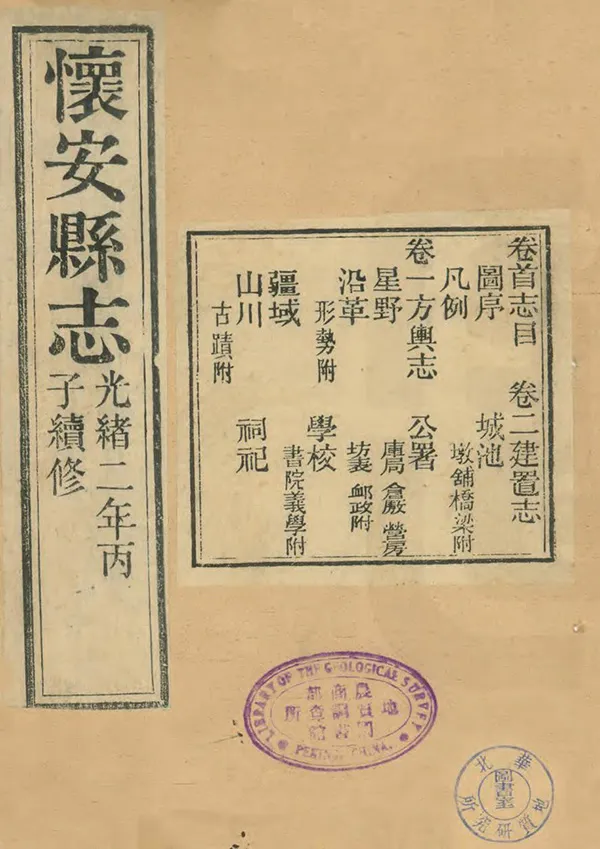 懷安縣志
光緒二年丙
子續修
卷首志目 卷二建置志
圖序 城池
凡例 墩舖橋梁附
卷一方輿志 公署
星野 庫局 倉廒 營房
沿革 坊表 郵政附
形勢附 學校
疆域 書院義學附
山川 祠祀
古蹟附
LIBRARY OF THE GEOLOGICAL SURVEY
農商部
地質調查所
圖書館
PEKING, CHINA.
華北地質研究所
圖書室